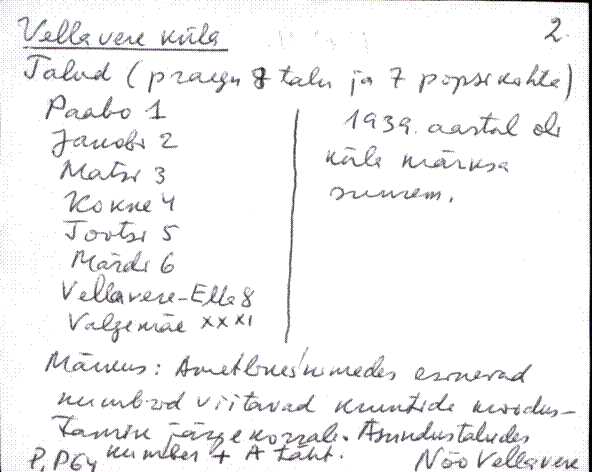 Vellavere küla 2.
Talud (praegu 8 talu ja 7 popsikohta)
Paabo 1
Janobi 2
Matsi 3
Kokne 4
Tootsi 5
Märdi 6
Vellavere-Elle 8
Valgemäe xxxi
1939. aastal oli
küla märksa
suurem.
Märkus: Ametlikes nimedes esinevad
numbrid viitavad kruntide moodus-
tamise järjekorrale. Asundustaludes
number + A täht.
P, P64 Nõo Vellavere